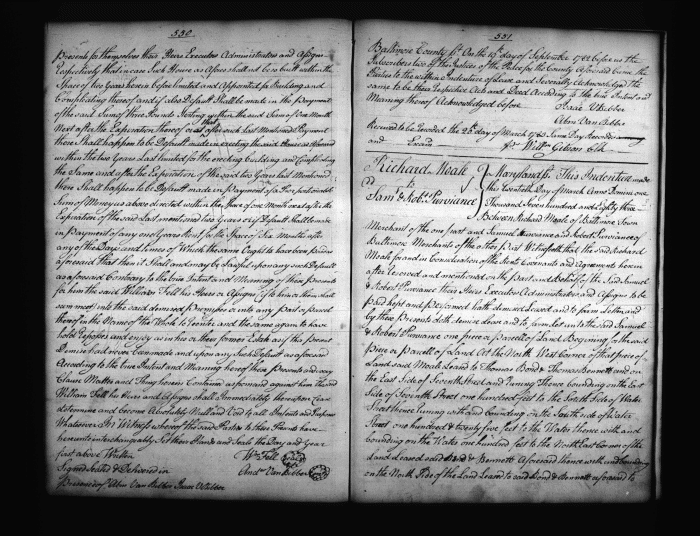 550
Presents for themselves their Heirs Executors Administrators and Assigns
Respectively that in case Such House as Afores shall not be so built within the
Space of two Years herein before limited and Appointed for Building and
Compleating thereof and if also Default Shall be made in the payment
of the said Sum of Three Pounds Sterling within the said Term of One Month
Next after the Expiration thereof or if after such last Mentioned Payment
there Shall happen to be Default made in erecting the said House as Aforesaid
within the two Years Last limited for the erecting building and Compleating
the Same and after the Expiration of the said two Years last Mentioned
there Shall happen to be Default made in Payment of a
Sum of Money as above directed within the Space of one Month next after the
Expiration of the said last mentioned two Years or if Default shall be made
in payment of any one Years Rent for the Space of Six Months after
any of the Days and times of Which the same Ought to have been paid as
aforesaid that then it Shall and may be Lawful upon any such Default
as aforesaid Contrary to the true Intent and Meaning of these Presents
for him the said William Fell his Heirs or Assigns if to him or them it shall
seem meet into the said demised Premisses or into any Part or parcel
thereof in the Name of the Whole to reenter and the same again to have
hold repossess and enjoy as in his or their former Estate as if this present
Demise had never been made and upon any such Default as aforesaid
According to the true Intent and Meaning hereof these Presents and every
Clause Matter and Thing herein Contained as against him the said
William Fell his Heirs and Assigns shall Immediately thereupon Cease
determine and become Absolutely Null and Void to all Intents and Purposes
Whatsoever In Witness whereof the said Parties to these Presents have
hereunto interchangeably Set their Hands and Seals the Day and year
first above Written
Wm Fell
Signed Sealed & Delivered in
Andw Van Bibber
Presence of Abm Van Bibber Isaac VBibber
551
Baltimore County Sc. On the 10th day of September 1782 before us the
Subscribers two of the Justices of the Peace for the County Aforesaid Came the
Parties to the within Indenture of Lease and Severally Acknowledged the
same to be their Respective Act and Deed According to the true Intent and
Meaning thereof Acknowledged before
Isaac VBibber
Abm Van Bibber
Received to be recorded the 26th day of March 1783 Same Day Recorded
and Exam'd
pr Willm Gibson Clk
Richard Moale
to
Saml & Robt Purviance
Maryland Sc. This Indenture made
this twentieth Day of March Anno Domini one
thousand Seven hundred and Eighty three
Between Richard Moale of Baltimore Town
Merchant of the one part and Samuel Purviance and Robert Purviance of
Baltimore Merchants of the other Part Witnesseth that the said Richard
Moale for and in Consideration of the Rents Covenants and Agreements herein
after reserved and mentioned on the Part and Behalf of the said Samuel
& Robert Purviance their Heirs Executors Administrators and Assigns to be
Paid Kept and Performed hath demised Leased and to farm Letten and
by these Presents doth demise Lease and to farm let unto the said Samuel
& Robert Purviance one piece or parcell of Land Beginning for the said
Piece or Parcell of Land At the North West Corner of that piece of
Land said Moale Leased to Thomas Bond & Thomas Bennett and on
the East Side of Seventh Street and running Thence bounding on the East
Side of Seventh Street one hundred feet to the South Side of Water
Street thence running with and bounding on the South side of Water
Street one hundred & twenty five feet to the Water thence with and
bounding on the Water one hundred feet to the North East Corner of the
Land Leased Bond & Bennett Aforesaid thence with and bounding
on the North Side of the Land Leased to said Bond & Bennett Aforesaid to